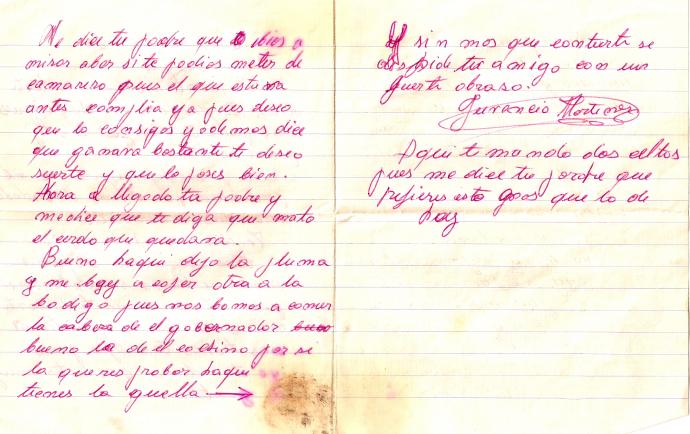 Me dice tu padre que ibas a
mirar aber si te podias meter de
camarero pues el que estava
antes complia ya pues deseo
que lo consigas y ademas dice
que ganara bastante te deseo
suerte y que lo pases bien.
Ahora a llegado tu padre y
me dice que te diga que mato
el cerdo que quedava.
Bueno haqui dejo la pluma
y me boy a cojer otra a la
bodega pues nos bamos a comer
la cabeza de el gobernador
bueno la de el cochino por si
la queres probar haqui
tienes la guella
y sin mas que contarte se
despide tu amigo con un
fuerte abraso.
Martinez
Aqui te mando dos celtas
pues me dice tu padre que
prefieres esto que lo de